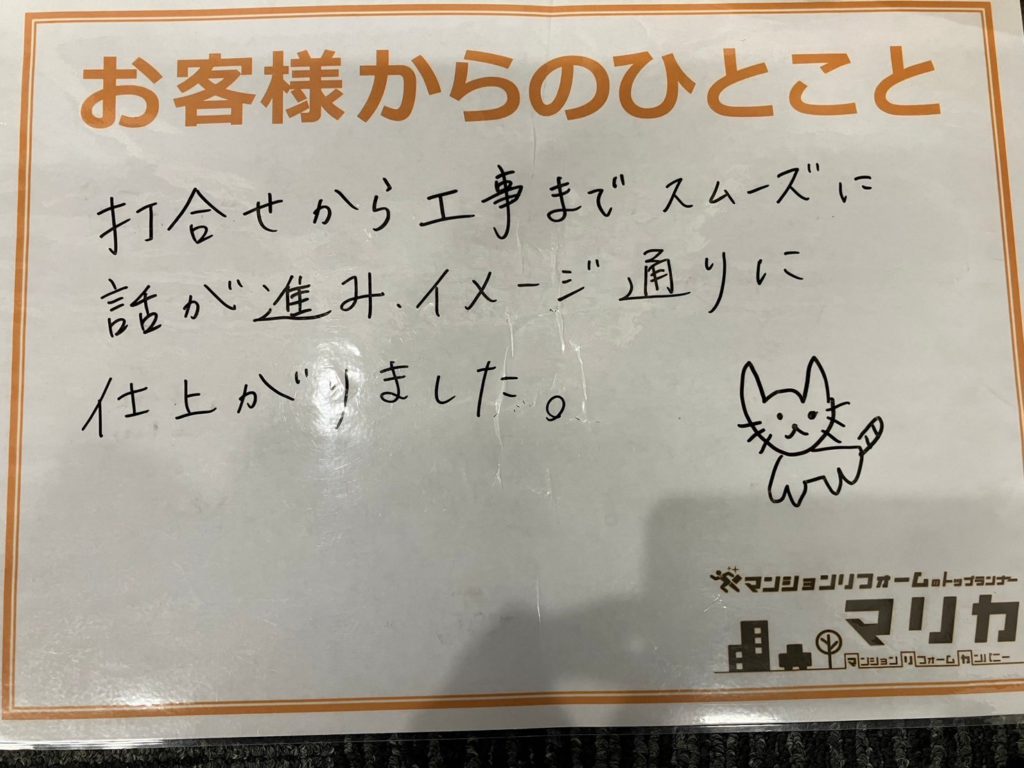 お客様からのひとこと
打合せから工事までスムーズに
話が進み、イメージ通りに
仕上がりました。
マンションリフォームのトップランナー
マリカ
マンションリフォームカンパニー